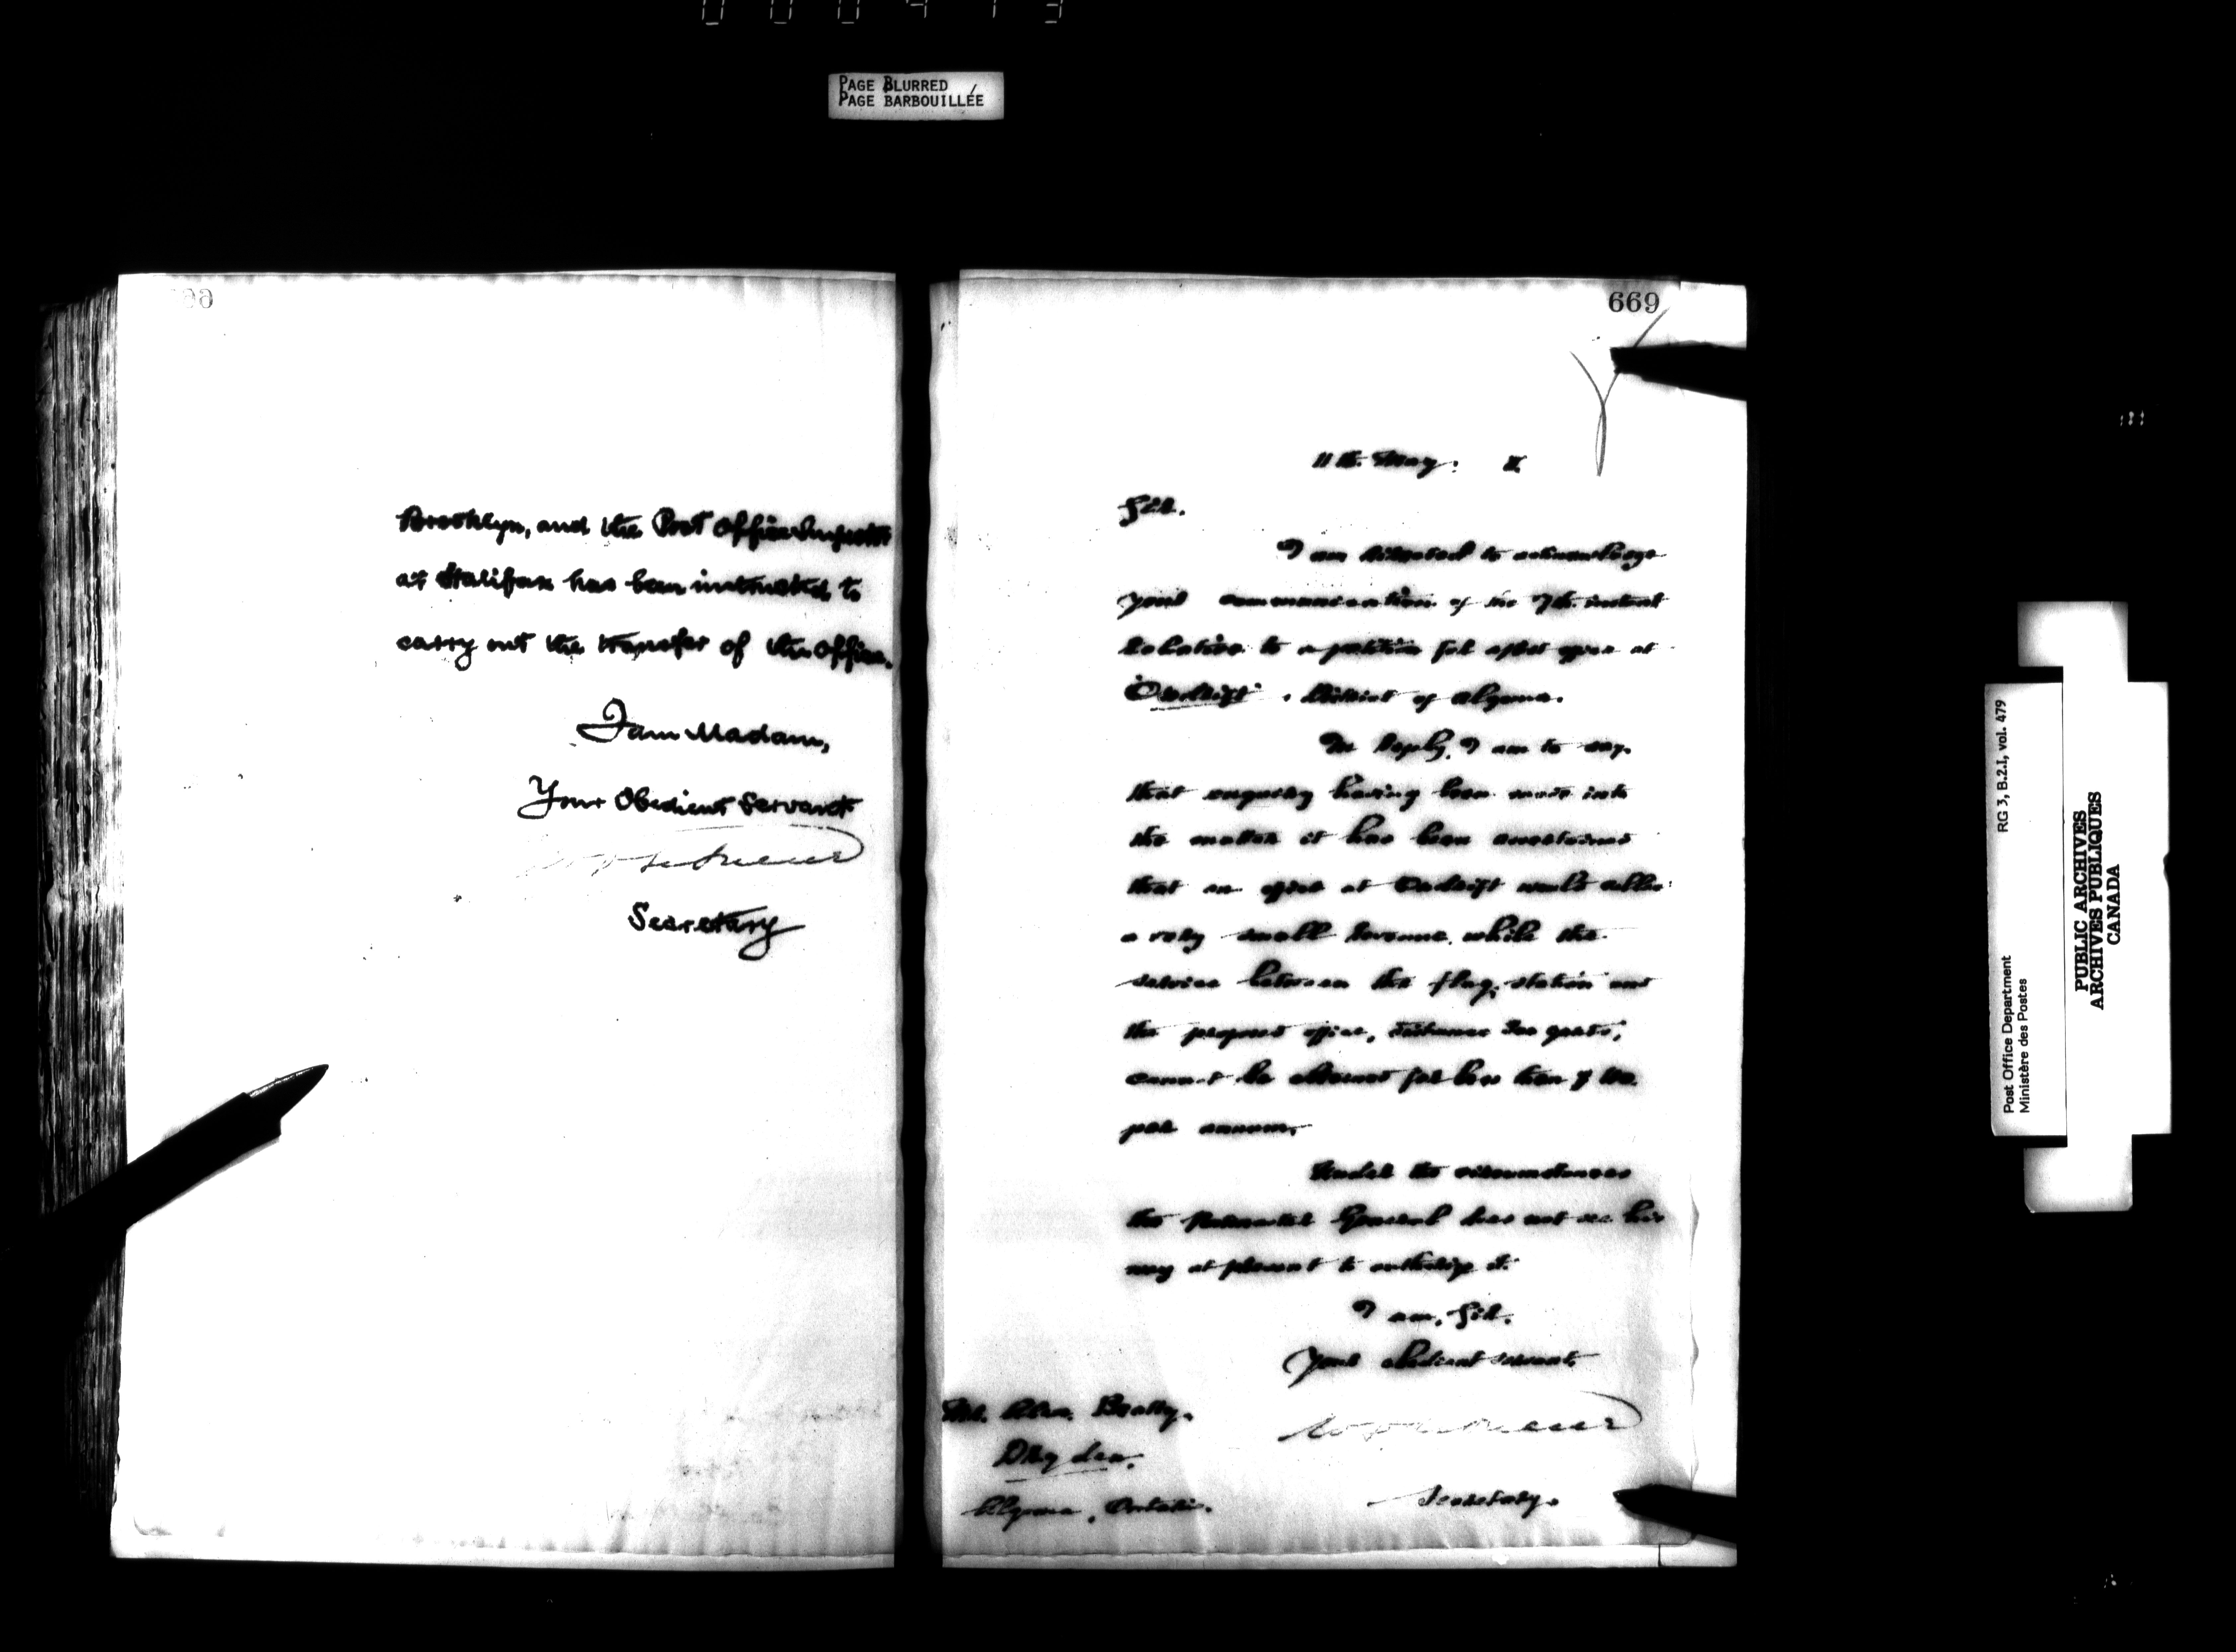 PAGE BLURRED
PAGE BARBOUILLÉE
Brooklyn, and the Post Office Inspector
at Halifax has been instructed to
carry out the transfer of the Office.
I am Madam,
Your Obedient Servant
Secretary
669
11th. May.
Sir.
I am directed to acknowledge
your communication of the 7th. instant
relative to a petition for a post office at
District of Algoma.
In reply, I am to say.
that enquiry having been made into
the matter it has been ascertained
that an office at would
a very small revenue, while the
service between the flag station and
the proposed office, distance yards,
cannot be obtained for less than $
per annum.
Under the circumstances
the Postmaster General does not see his
way at present to authorize it.
I am, Sir.
Your obedient servant,
Secretary.
Mr. Beatty.
Dryden.
Algoma, Ontario.
RG 3, B.2.I, vol. 479
Post Office Department
Ministère des Postes
PUBLIC ARCHIVES
ARCHIVES PUBLIQUES
CANADA